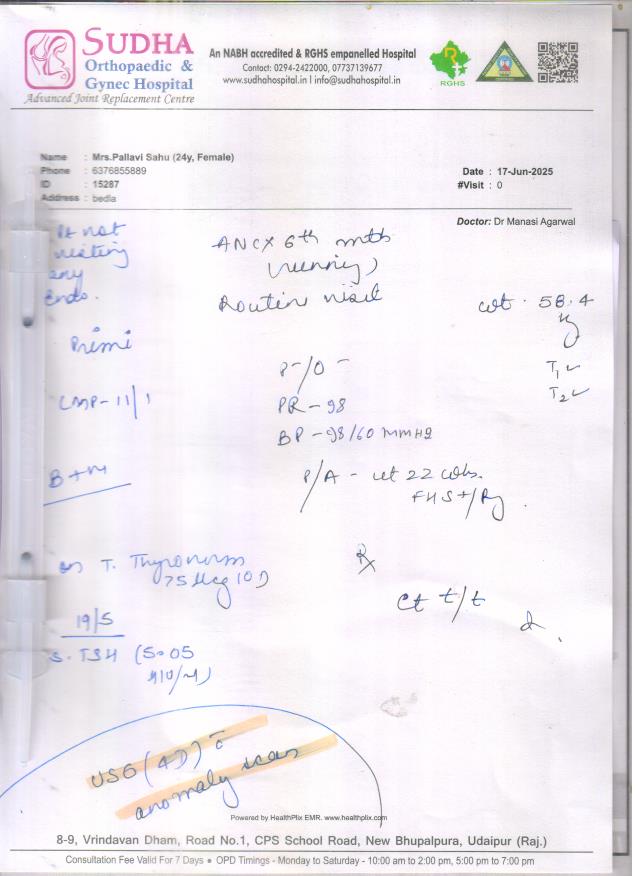 SUDHA
Orthopaedic &
Gynec Hospital
Advanced Joint Replacement Centre
An NABH accredited & RGHS empanelled Hospital
Contact: 0294-2422000, 07737139677
www.sudhahospital.in | info@sudhahospital.in
RGHS
Name : Mrs.Pallavi Sahu (24y, Female)
Phone : 6376855889
ID : 15287
Address : bedla
Date : 17-Jun-2025
#Visit : 0
Doctor: Dr Manasi Agarwal
Pt not
any
ANCX 6th mth
(running)
Routine visit
wt. 58.4
kg
Primi
P-/O-
T1 ✓
T2 ✓
LMP-11/1
PR-98
BP-98/60 MMHg
B+ve
P/A - ut 22 wks.
FHS+/Rg.
on T. Thyronorm
75 Mcg 1OD
Rx
Ct t/t
19/5
S.TSH (5.05
USG (4D) c̄
anomaly scan
Powered by HealthPlix EMR. www.healthplix.com
8-9, Vrindavan Dham, Road No.1, CPS School Road, New Bhupalpura, Udaipur (Raj.)
Consultation Fee Valid For 7 Days ● OPD Timings - Monday to Saturday - 10:00 am to 2:00 pm, 5:00 pm to 7:00 pm